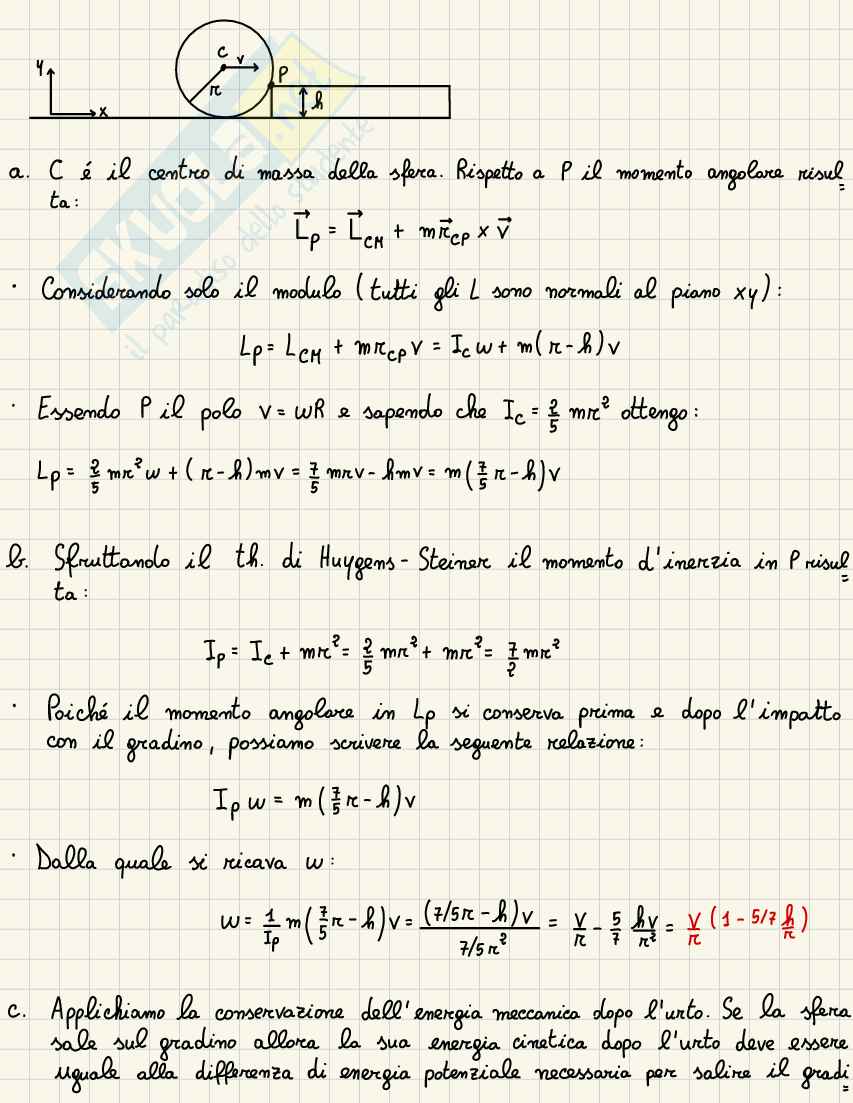 y
C
v
P
r
h
x
SKUOLA.net
il paradiso dello studente
a. C é il centro di massa della sfera. Rispetto a P il momento angolare risul=
ta:
L⃗_P = L⃗_CM + m r⃗_CP x v⃗
· Considerando solo il modulo (tutti gli L sono normali al piano xy):
L_P = L_CM + m r_CP v = I_c w + m(r-h)v
· Essendo P il polo v = wR e sapendo che I_c = 2/5 mr² ottengo:
L_P = 2/5 mr² w + (r-h)mv = 7/5 mrv - hmv = m(7/5 r - h)v
b. Sfruttando il th. di Huygens-Steiner il momento d'inerzia in P risul=
ta:
I_P = I_c + mr² = 2/5 mr² + mr² = 7/2 mr²
· Poiché il momento angolare in L_P si conserva prima e dopo l'impatto
con il gradino, possiamo scrivere la seguente relazione:
I_P w = m(7/5 r - h)v
· Dalla quale si ricava w:
w = 1/I_P m(7/5 r - h)v = (7/5 r - h)v / 7/5 r² = v/r - 5/7 hv/r² = v/r (1 - 5/7 h/r)
c. Applichiamo la conservazione dell'energia meccanica dopo l'urto. Se la sfera
sale sul gradino allora la sua energia cinetica dopo l'urto deve essere
uguale alla differenza di energia potenziale necessaria per salire il gradi=